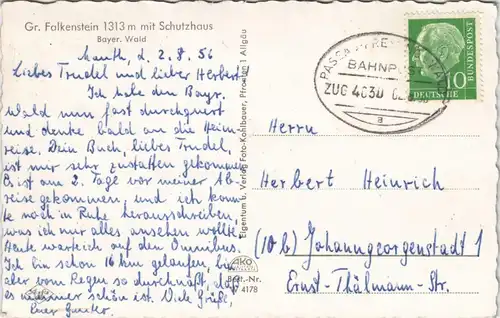 Gr. Falkenstein 1313 m mit Schutzhaus
Bayer. Wald
Mauth, d. 2.8.56
Liebes Trudel und lieber Herbert
Ich habe den Bayr.
Wald nun fast durchquert
und denke bald an die Heim-
reise. Dein Buch, liebes Trudel,
ist mir sehr zustatten gekommen
Es ist am 2. Tage vor meiner Ab-
reise gekommen, und ich konn-
te noch in Ruhe herausschreiben,
was ich nur alles ansehen wollte.
Heute warte ich auf den Omnibus.
Ich bin schon 16 km gelaufen, bin
aber vom Regen so durchnäßt, daß
es nimmer schön ist. Viele Grüße,
Euer
Eigentum u. Verlag Foto-Kohlbauer, Pfronten 1 Allgäu
Best.-Nr.
4178
PASSAU
BAHNPOST
ZUG 4030
a
10
DEUTSCHE
BUNDESPOST
Herrn
Herbert Heinrich
(10b) Johanngeorgenstadt 1
Ernst-Thälmann-Str.